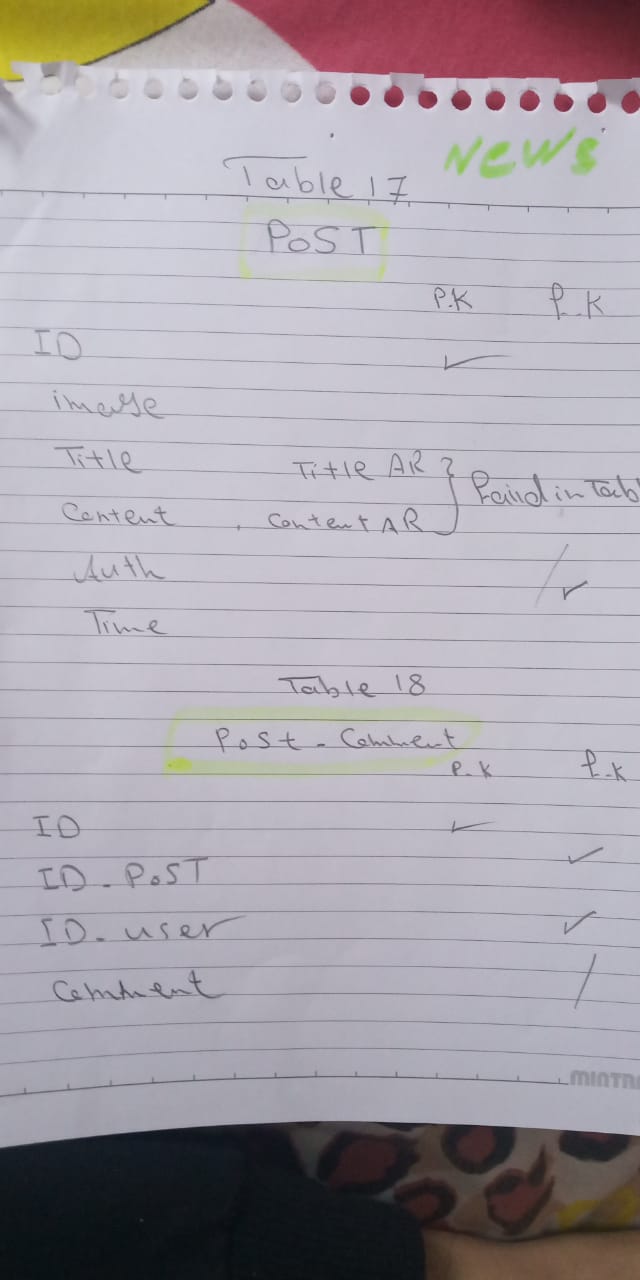 NEWS
Table 17
PoST
P.K f-K
ID
image
Title Title AR
Content , Content AR
in Tabl
Auth
Time
Table 18
Post - Comment
P-K f-K
ID
ID - PoST
ID - user
Comment
MINTRA